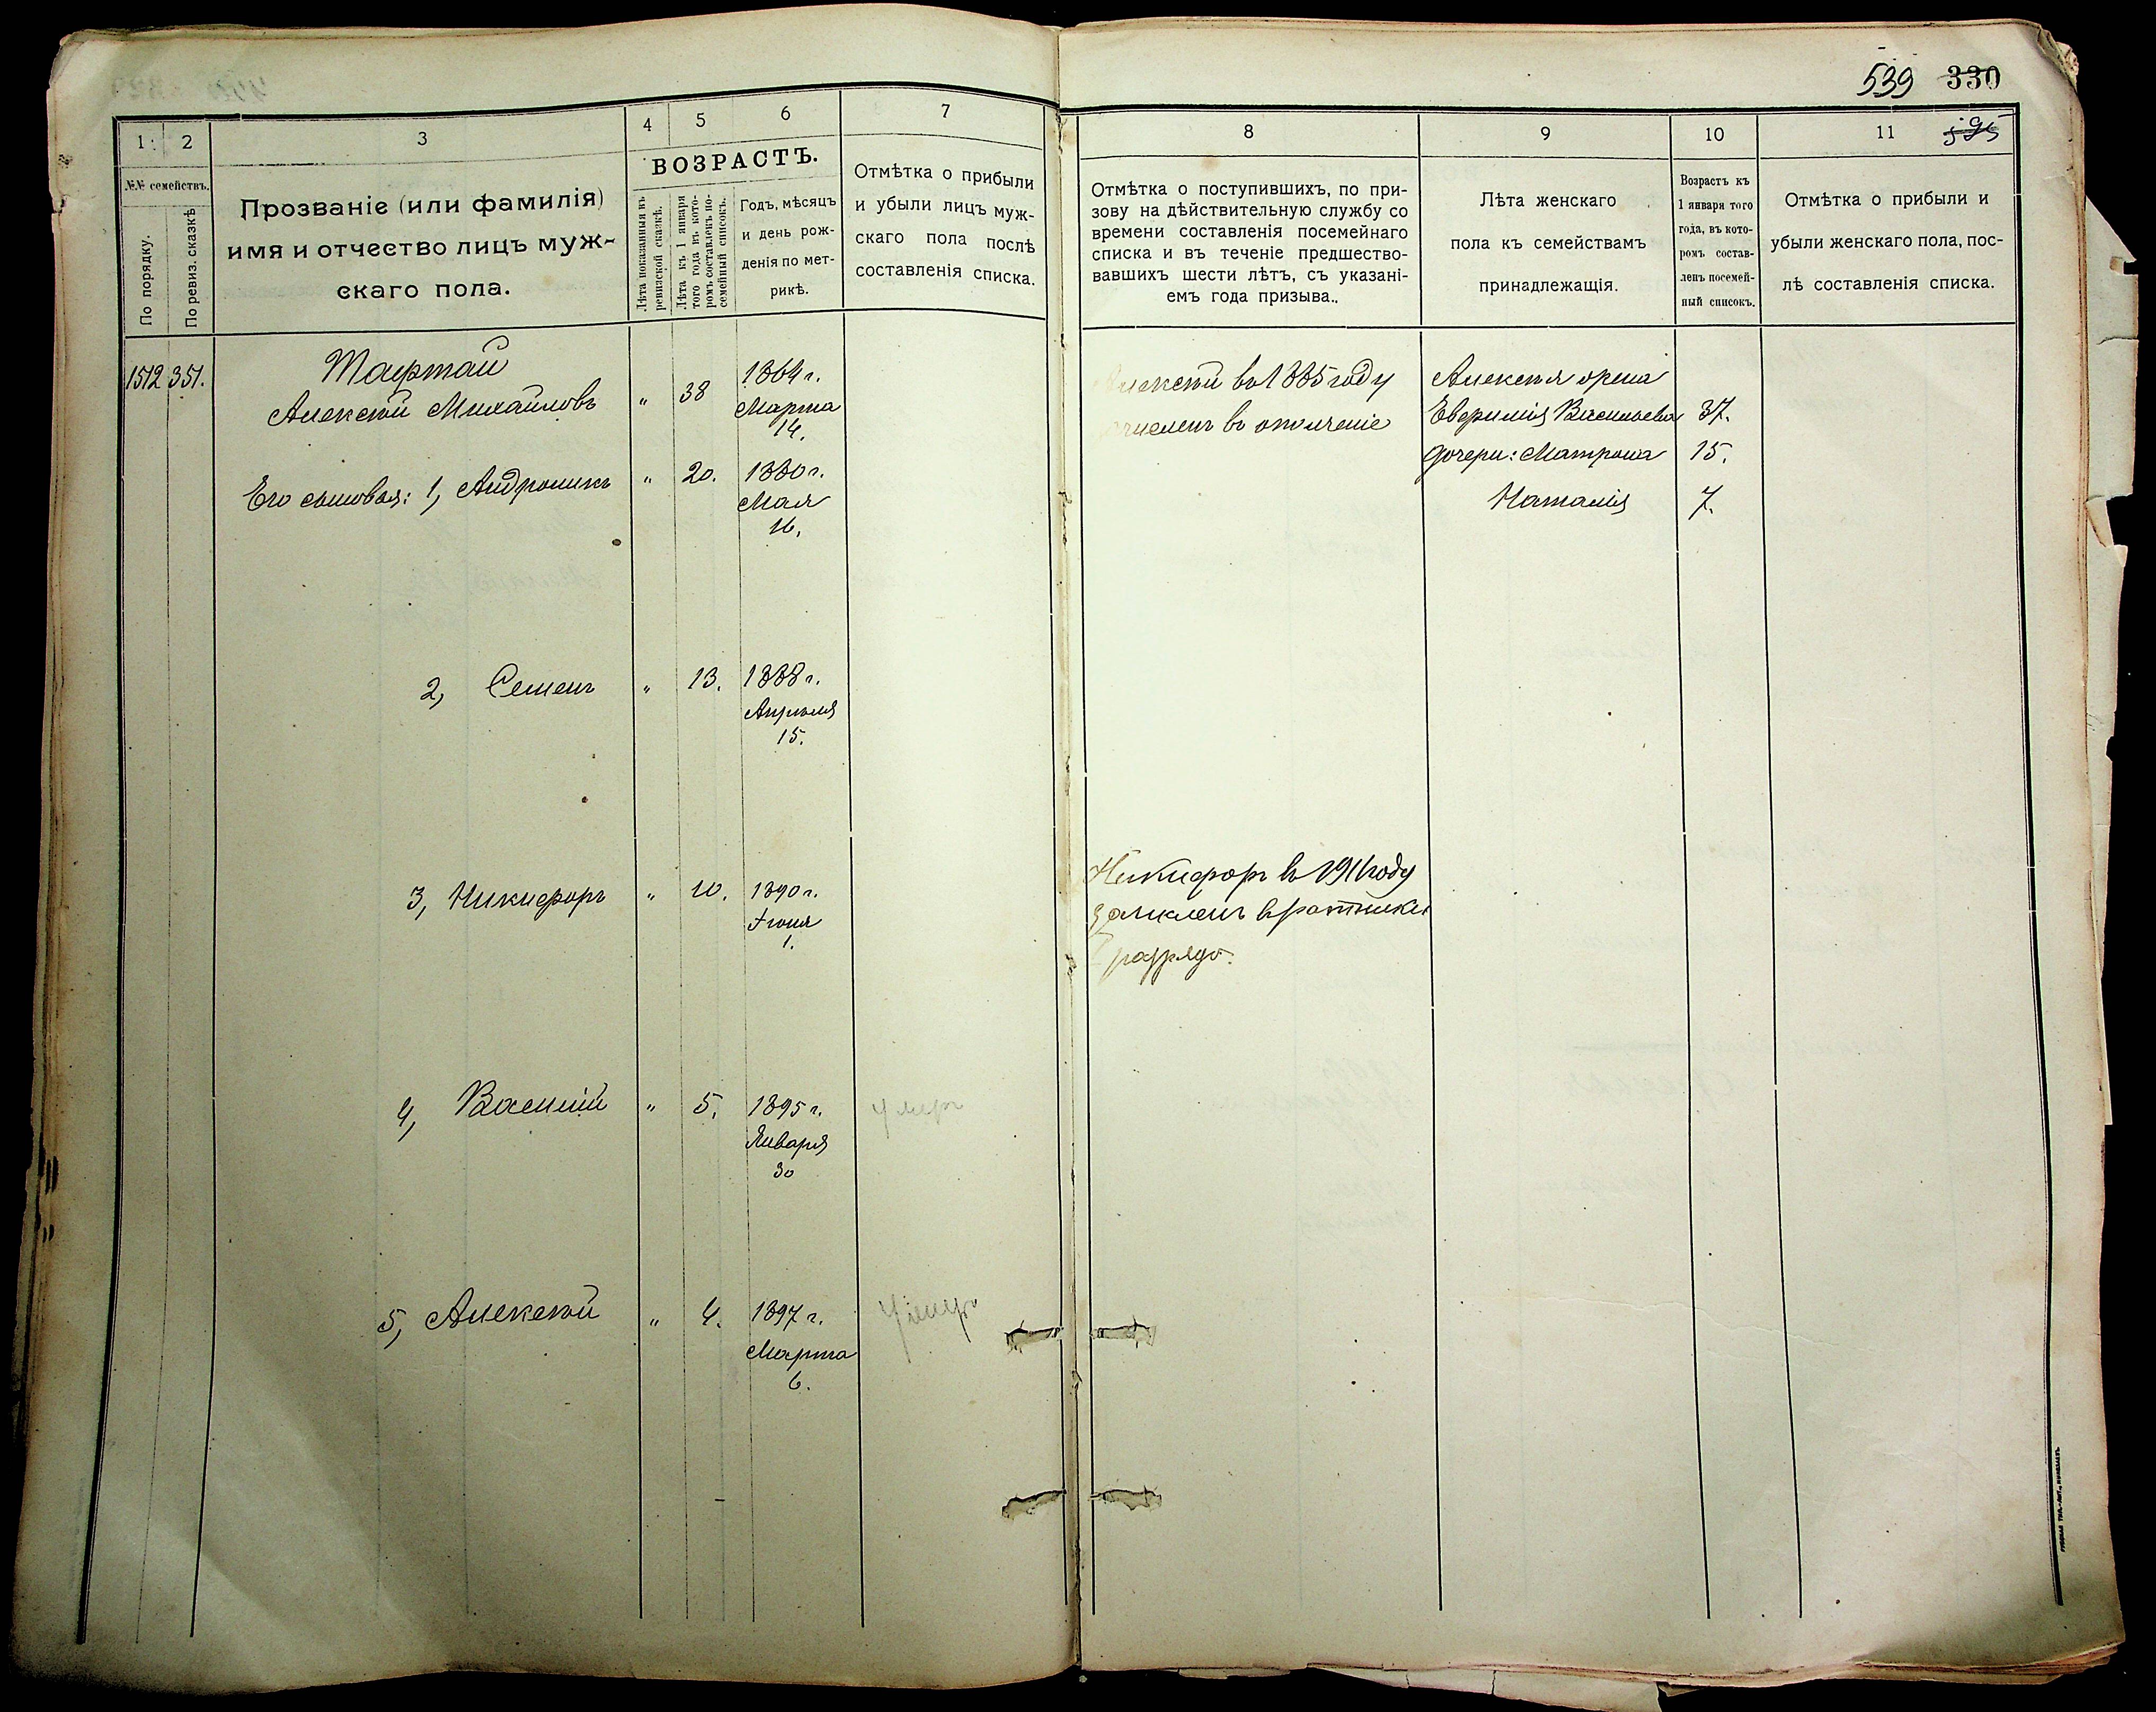 539 330
595
1
2
3
4
5
6
7
№№ семействъ.
По порядку.
По ревиз. сказкѣ
Прозваніе (или фамилія)
имя и отчество лицъ муж-
скаго пола.
ВОЗРАСТЪ.
Лѣта показанныя въ
ревизской сказкѣ.
Лѣта къ 1 января
того года въ кото-
ромъ составленъ по-
семейный списокъ.
Годъ, мѣсяцъ
и день рож-
денія по мет-
рикѣ.
Отмѣтка о прибыли
и убыли лицъ муж-
скаго пола послѣ
составленія списка.
8
9
10
11
Отмѣтка о поступившихъ, по при-
зову на дѣйствительную службу со
времени составленія посемейнаго
списка и въ теченіе предшество-
вавшихъ шести лѣтъ, съ указані-
емъ года призыва.
Лѣта женскаго
пола къ семействамъ
принадлежащія.
Возрастъ къ
1 января того
года, въ кото-
ромъ состав-
ленъ посемей-
ный списокъ.
Отмѣтка о прибыли и
убыли женскаго пола, пос-
лѣ составленія списка.
1512 351.
Тафтай
Алексѣй Михайловъ " 38 1864 г.
Марта
14.
Его сыновья: 1, Андроникъ " 20. 1880 г.
Мая
16.
2, Семенъ " 13. 1888 г.
Апрѣля
15.
3, Никифоръ " 10. 1890 г.
Іюня
1.
4, Василій " 5. 1895 г. Умеръ
Января
30
5, Алексѣй " 4. 1897 г. Умеръ
Марта
6.
Алексѣй въ 1885 году
зачисленъ въ ополченіе
Никифоръ в 1911 году
зачисленъ в ратники
разряда.
Алексѣя жена
Евфимія Васильева 37.
дочери: Матрона 15.
Наталія 7.